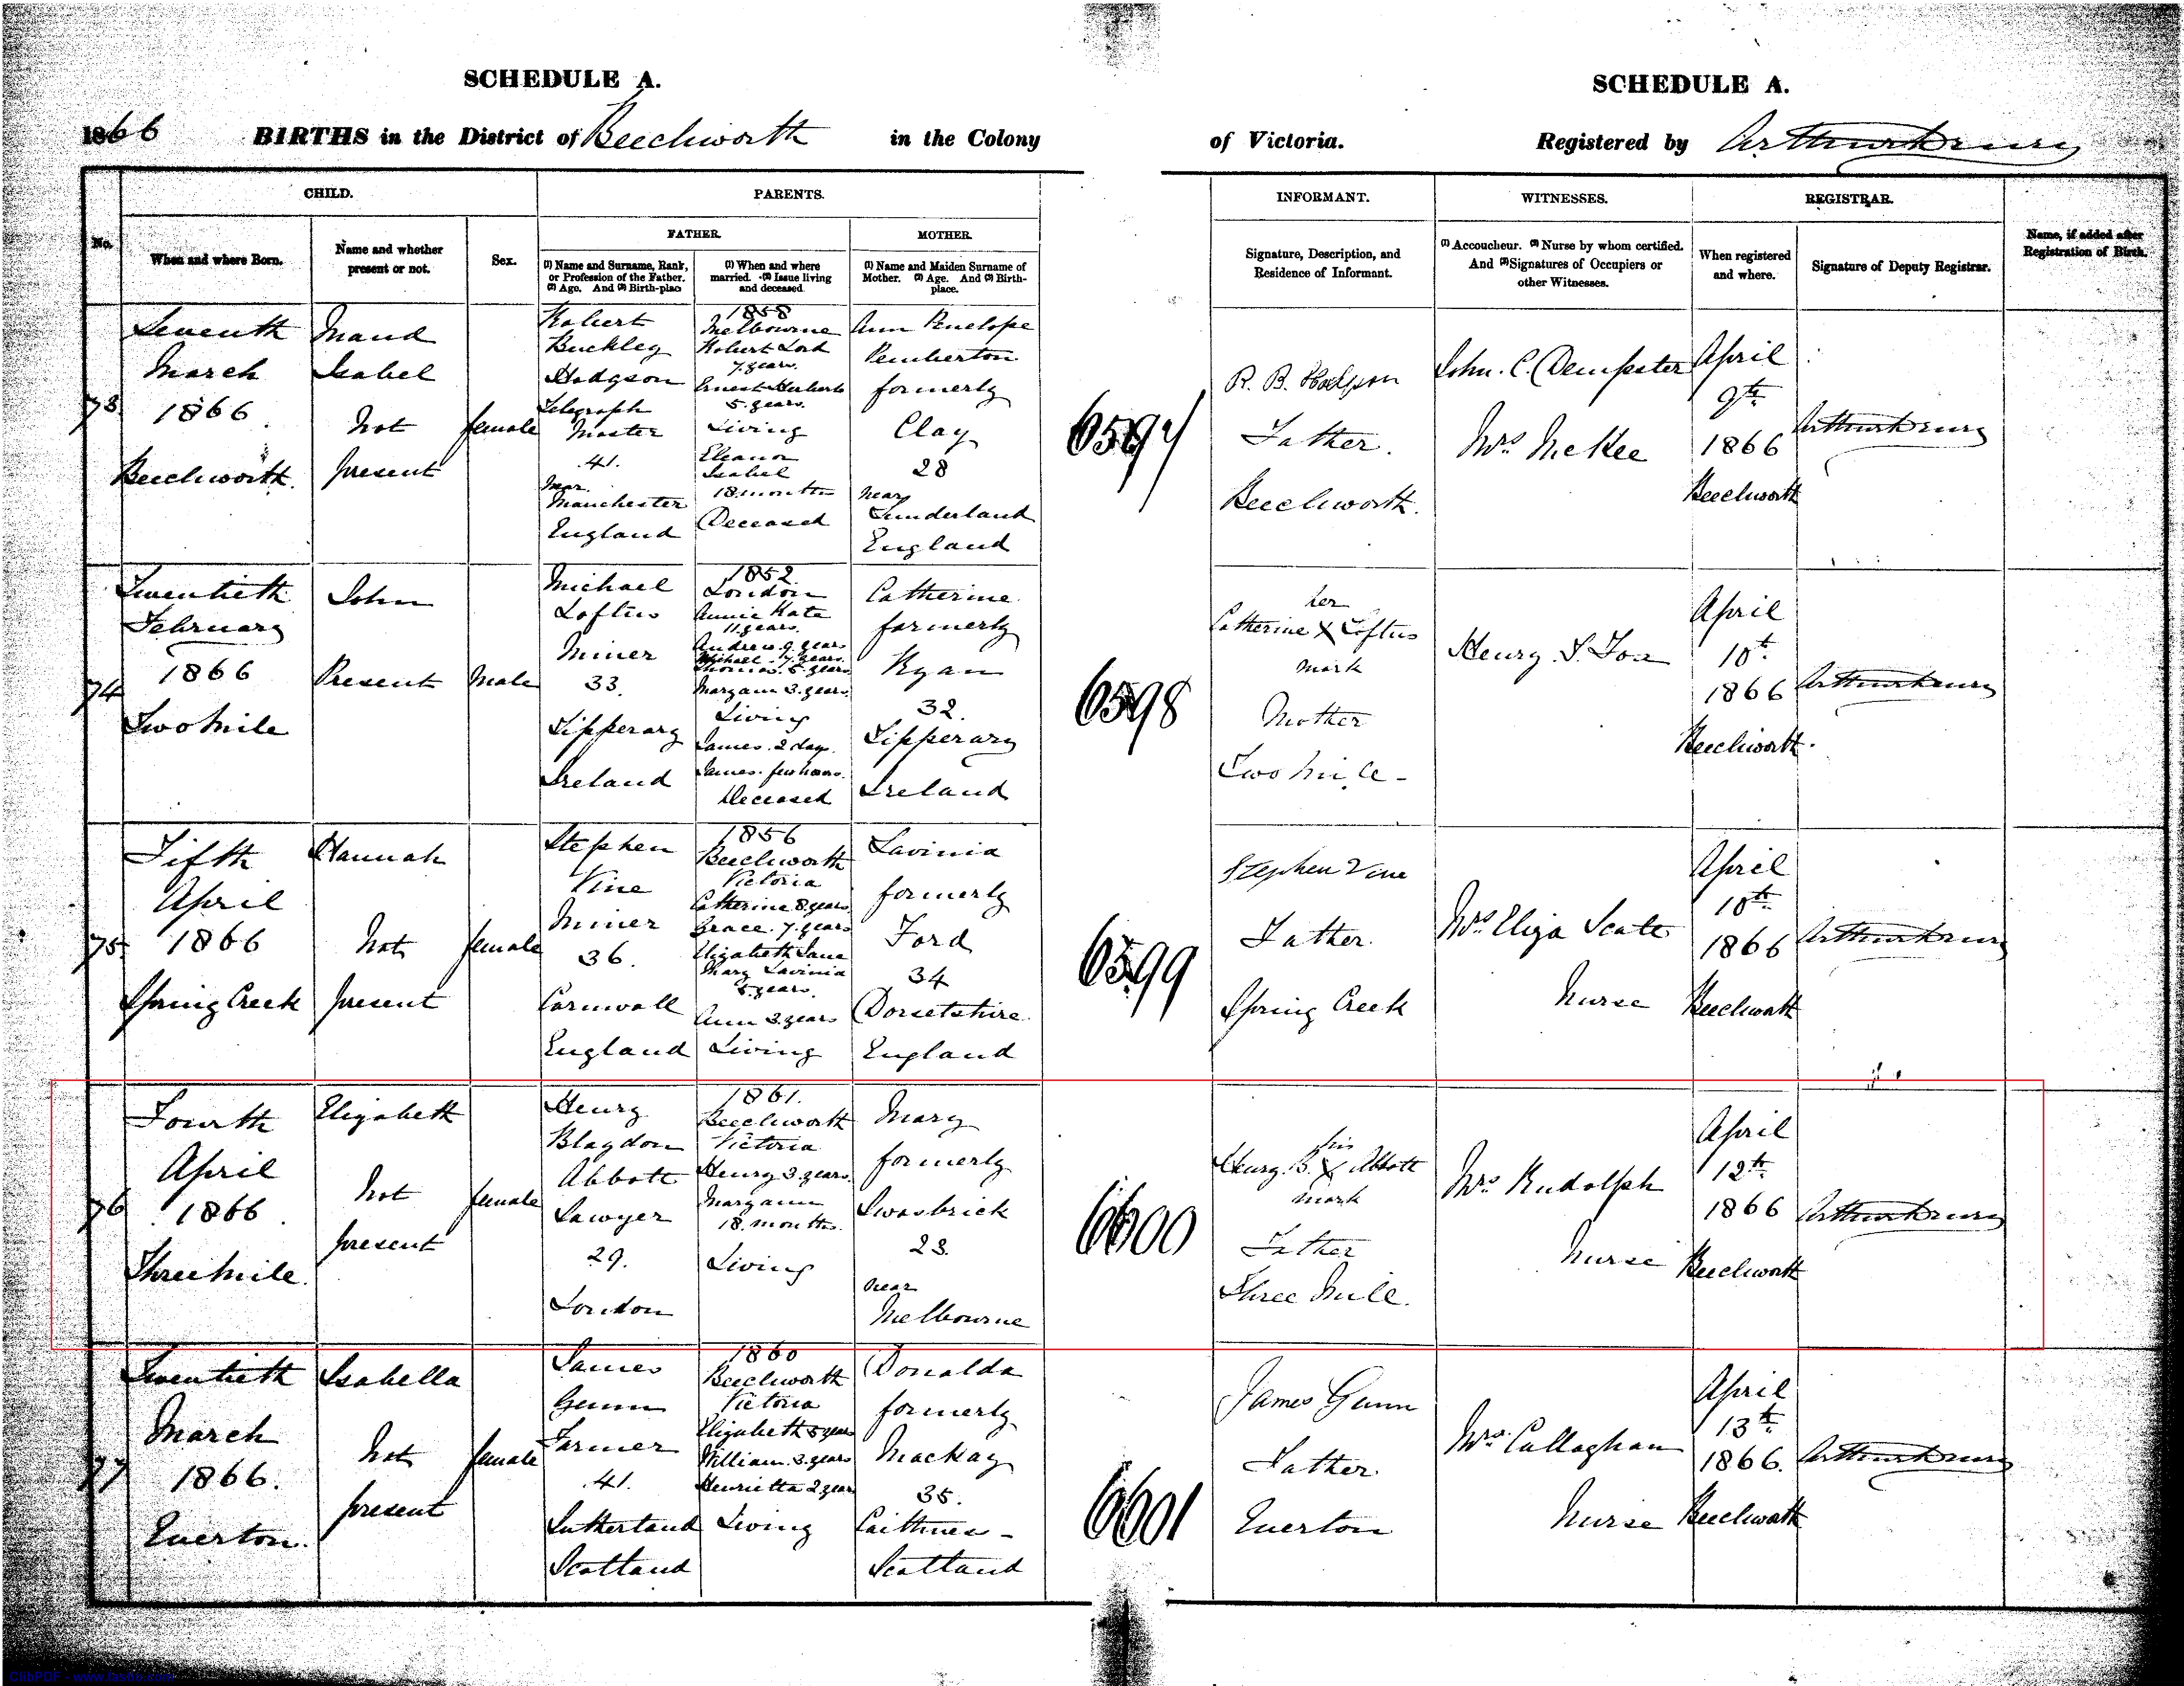 SCHEDULE A.
SCHEDULE A.
1866 BIRTHS in the District of Beechworth in the Colony of Victoria. Registered by
CHILD.
PARENTS.
INFORMANT.
WITNESSES.
REGISTRAR.
FATHER.
MOTHER.
No.
When and where Born.
Name and whether
present or not.
Sex.
(1) Name and Surname, Rank,
or Profession of the Father.
(2) Age. And (3) Birth-place
(1) When and where
married. (2) Issue living
and deceased.
(1) Name and Maiden Surname of
Mother. (2) Age. And (3) Birth-
place.
Signature, Description, and
Residence of Informant.
(1) Accoucheur. (2) Nurse by whom certified.
And (3) Signatures of Occupiers or
other Witnesses.
When registered
and where.
Signature of Deputy Registrar.
Name, if added after
Registration of Birth.
73
Seventh
March
1866
Beechworth.
Maud
Isabel
Not
present
female
Robert
Buckley
Hodgson
Telegraph
Master
41.
Near
Manchester
England
1858
Melbourne
Robert Lord
7 years.
Ernest Herbert
5 years.
Living
Eleanor
Isabel
18 months
Deceased
Ann Penelope
Pemberton
formerly
Clay
28
near
Sunderland
England
6597
R. B. Hodgson
Father.
Beechworth.
John. C. Dempster
Mrs McKee
April
9th
1866
Beechworth
74
Twentieth
February
1866
Two Mile
John
Present
Male
Michael
Loftus
Miner
33.
Tipperary
Ireland
1852
London
Annie Kate
11 years.
Andrew 9 years
Michael 7 years
Thomas 5 years
Margann 3 years
Living
James. 2 days.
James. few hours.
Deceased
Catherine
formerly
Ryan
32.
Tipperary
Ireland
6598
her
Catherine X Loftus
mark
Mother
Two Mile
April
10th
1866
Beechworth.
75
Fifth
April
1866
Spring Creek
Hannah
Not
present
female
Stephen
Vine
Miner
36.
Cornwall
England
1856
Beechworth
Victoria
Catherine 8 years
Grace. 7 years
Elizabeth Jane
Mary Lavinia
5 years.
Ann 3 years
Living
Lavinia
formerly
Ford
34
Dorsetshire
England
6599
Stephen Vine
Father.
Spring Creek
Mrs Eliza Scate
Nurse
April
10th
1866
Beechworth
76
Fourth
April
1866
Three Mile.
Elizabeth
Not
present
female
Henry
Blagdon
Abbott
Sawyer
29.
London
1861.
Beechworth
Victoria
Henry 3 years
Margann
18 months.
Living
Mary
formerly
Swasbrick
23.
near
Melbourne
6600
his
Henry. B. X Abbott
mark
Father
Three Mile.
Mrs Rudolph
Nurse
April
12th
1866
Beechworth
77
Twentieth
March
1866.
Everton.
Isabella
Not
present
female
James
Gunn
Farmer
41.
Sutherland
Scotland
1860
Beechworth
Victoria
Elizabeth 5 years
William. 3 years
Henrietta 2 years
Living
Donalda
formerly
MacKay
35.
Caithness
Scotland
6601
James Gunn
Father
Everton
Mrs Callaghan
Nurse
April
13th
1866.
Beechworth